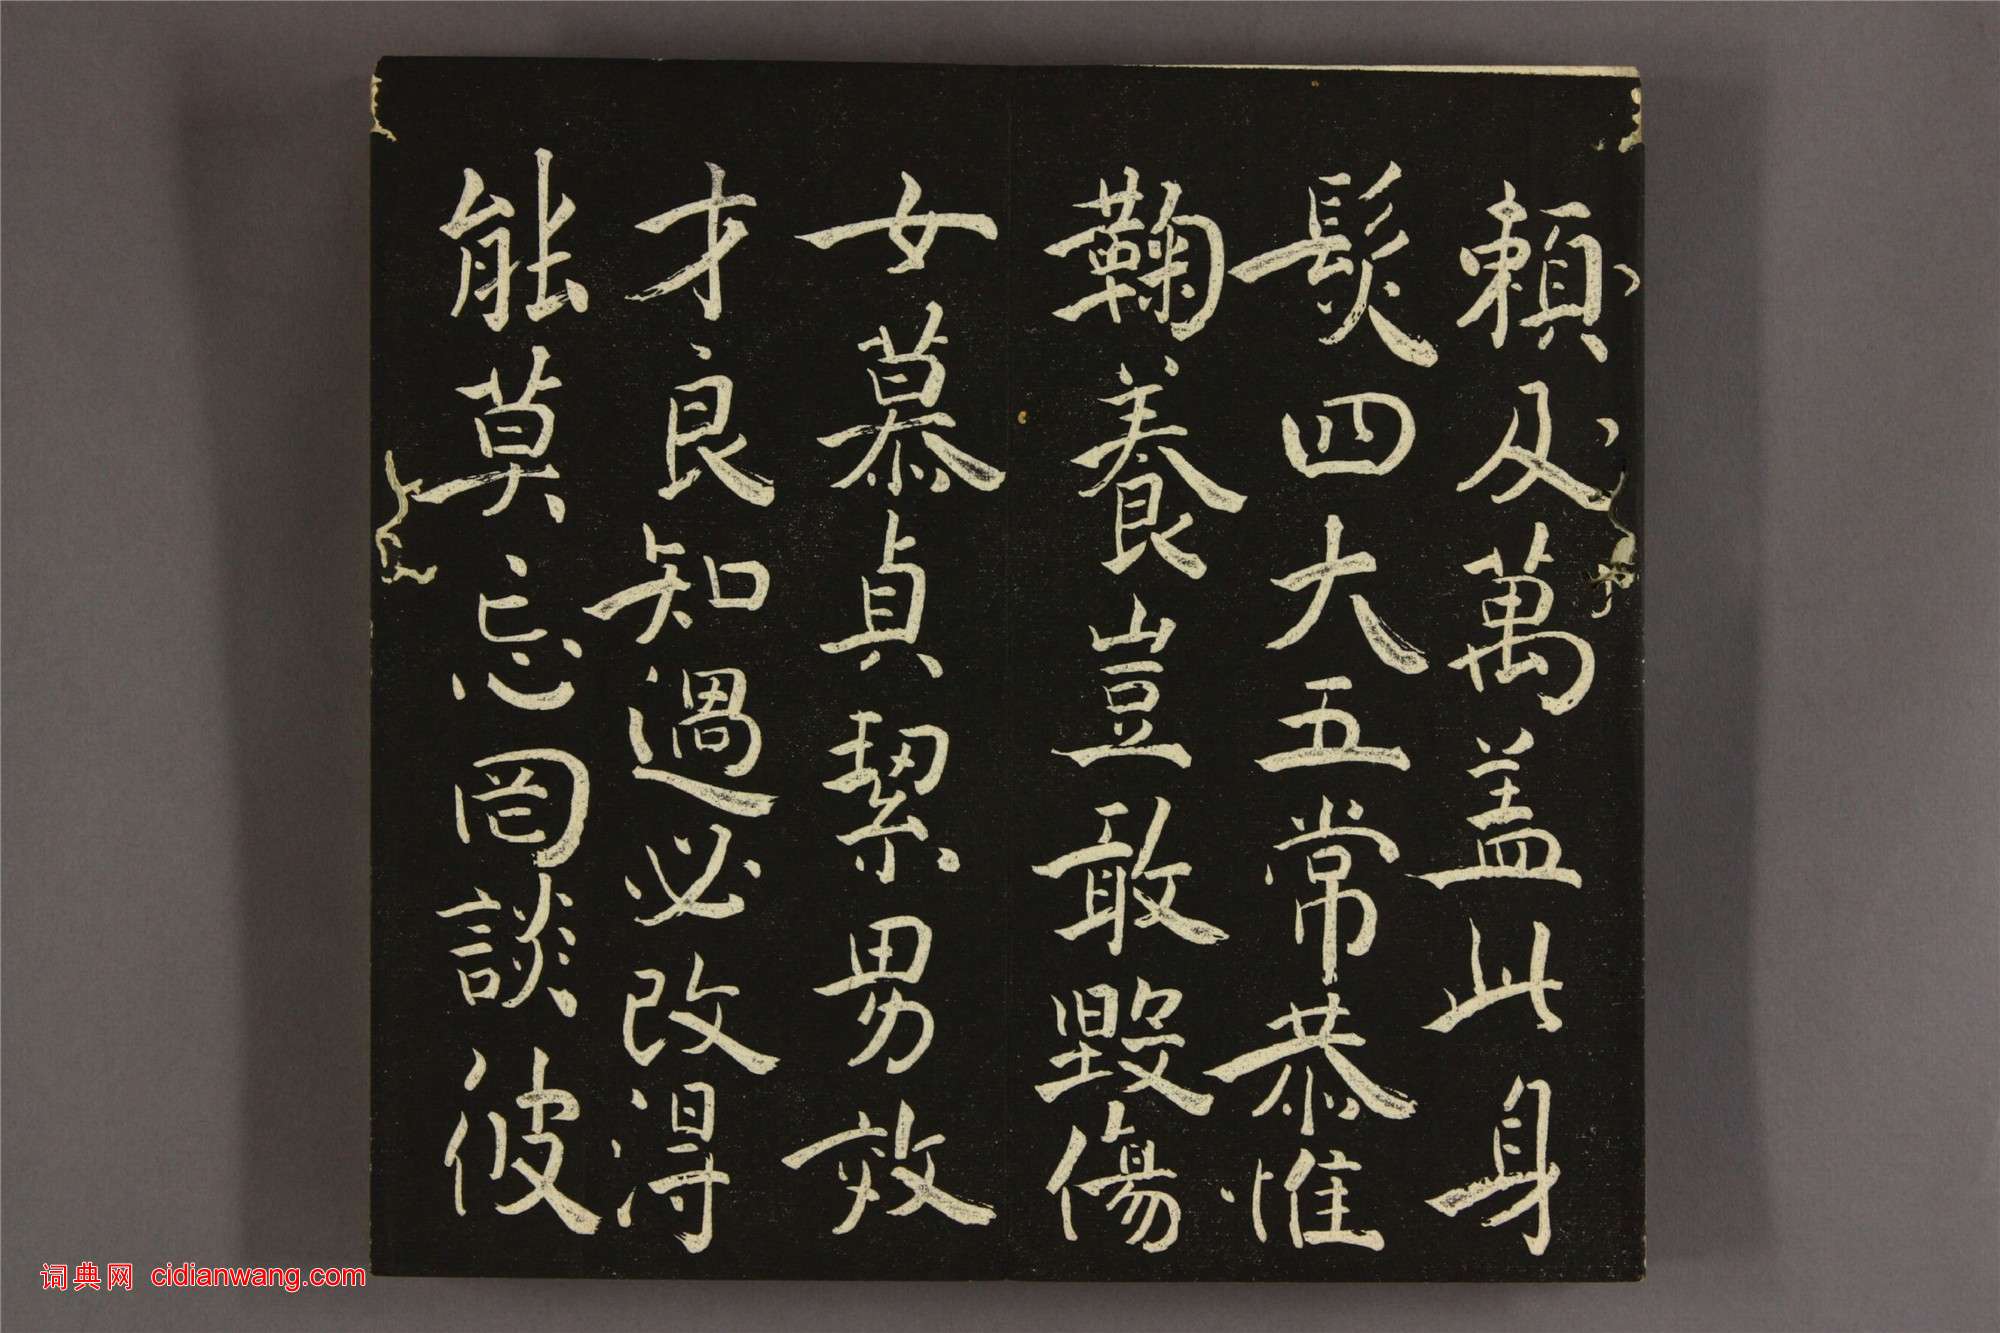 賴及萬盖此身
髮四大五常恭惟
鞠養豈敢毀傷
女慕貞絜男效
才良知過必改得
能莫忘罔談彼
词典网 cidianwang.com